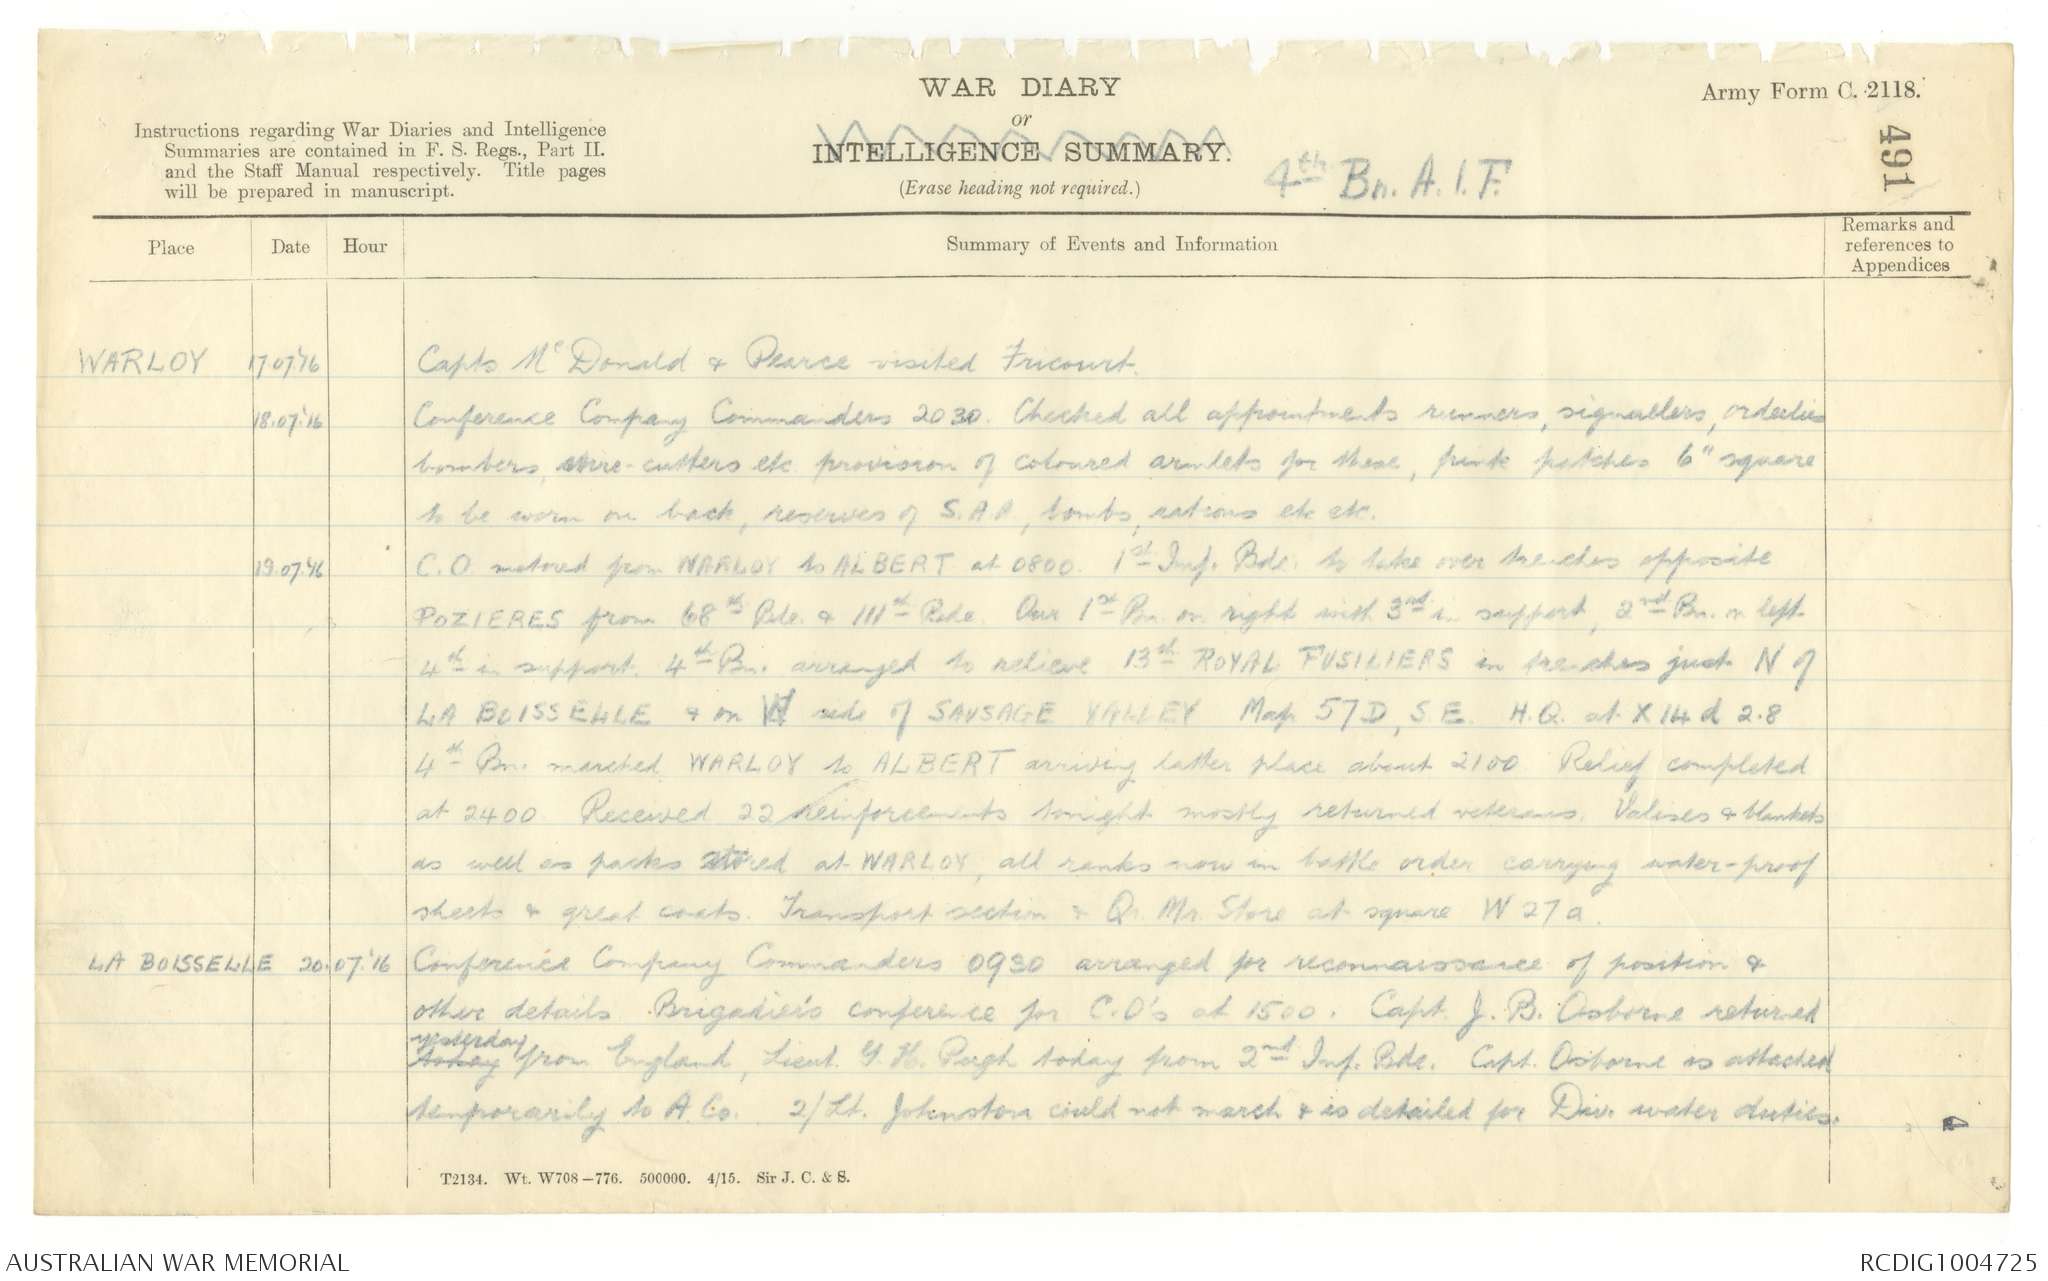 WAR DIARY
or
INTELLIGENCE SUMMARY.
(Erase heading not required.)
Army Form C. 2118.
Instructions regarding War Diaries and Intelligence
Summaries are contained in F. S. Regs., Part II.
and the Staff Manual respectively. Title pages
will be prepared in manuscript.
4th Bn. A.I.F.
491
Place Date Hour Summary of Events and Information Remarks and references to Appendices
WARLOY 17.07.'16 Capts McDonald & Pearce visited Fricourt.
18.07.'16 Conference Company Commanders 2030. Checked all appointments runners, signallers, orderlies
bombers, wire-cutters etc provision of coloured armlets for these, pink patches 6" square
to be worn on back, reserves of S.A.A, bombs, rations etc etc.
19.07.'16 C.O. motored from WARLOY to ALBERT at 0800. 1st Inf. Bde. to take over trenches opposite
POZIERES from 68th Bde. & 111th Bde. Our 1st Bn. on right with 3rd in support, 2nd Bn. on left
4th in support. 4th Bn. arranged to relieve 13th ROYAL FUSILIERS in trenches just N of
LA BOISSELLE & on side of SAUSAGE VALLEY Map 57D, S.E. H.Q. at X 14 d 2.8
4th Bn. marched WARLOY to ALBERT arriving latter place about 2100 Relief completed
at 2400. Received 22 reinforcements tonight mostly returned veterans. Valises & blankets
as well as packs stored at WARLOY, all ranks now in battle order carrying water-proof
sheets & great coats. Transport section & Qr. Mr. Store at square W 27 a.
LA BOISSELLE 20.07.'16 Conference Company Commanders 0930 arranged for reconnaissance of position &
other details. Brigadier's conference for C.O's at 1500. Capt. J. B. Osborne returned
yesterday
today from England, Lieut. G. H. Pugh today from 2nd Inf. Bde. Capt. Osborne is attached
temporarily to A Co. 2/Lt. Johnston could not march & is detailed for Div. water duties.
4
T2134. Wt. W708-776. 500000. 4/15. Sir J. C. & S.
AUSTRALIAN WAR MEMORIAL
RCDIG1004725